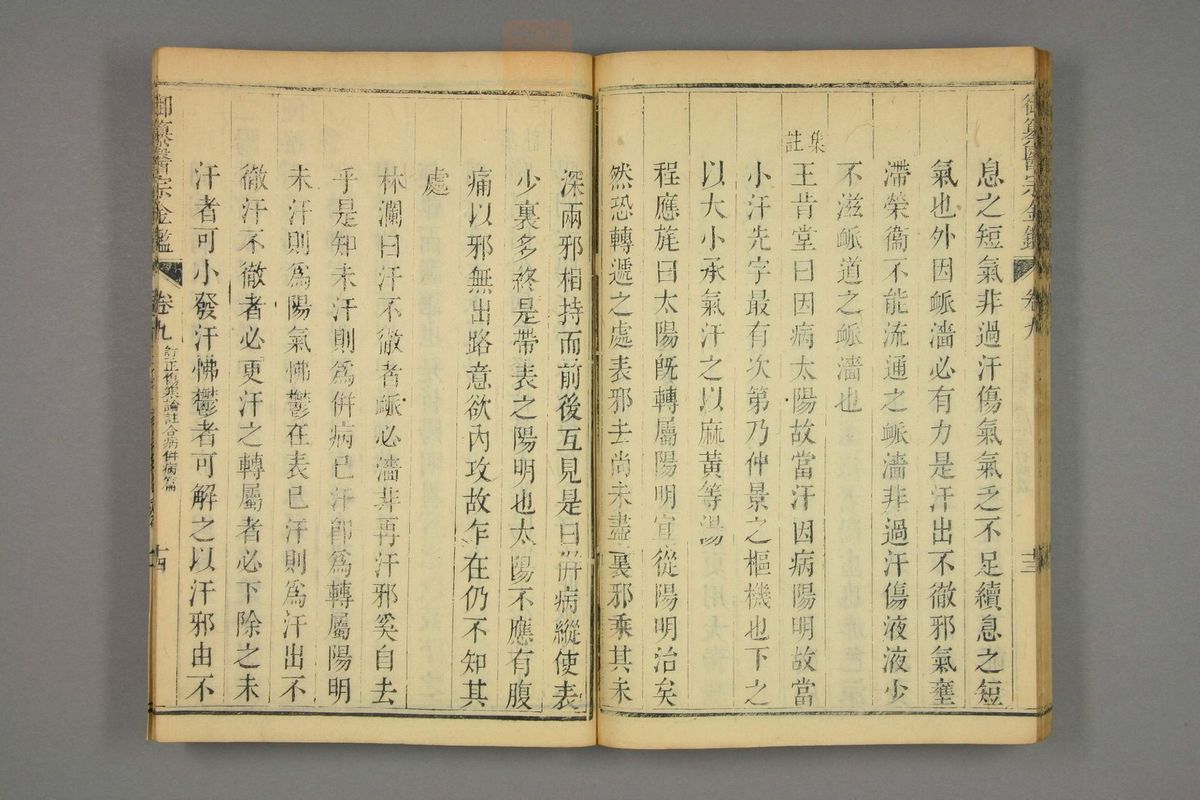 御纂醫宗金鑑 卷九 十三
息之短氣非過汗傷氣氣乏不足續息之短
氣也外因衇濇必有力是汗出不徹邪氣壅
滯榮衞不能流通之衇濇非過汗傷液液少
不滋衇道之衇濇也
集註
王肯堂曰因病太陽故當汗因病陽明故當
小汗先字最有次第乃仲景之樞機也下之
以大小承氣汗之以麻黃等湯
程應旄曰太陽旣轉屬陽明宜從陽明治矣
然恐轉遞之處表邪去尚未盡裏邪乘其未
深兩邪相持而前後互見是曰併病縱使表
少裏多終是帶表之陽明也太陽不應有腹
痛以邪無出路意欲內攻故乍在仍不知其
處
林瀾曰汗不徹者衇必濇非再汗邪奚自去
乎是知未汗則爲併病已汗卽爲轉屬陽明
未汗則爲陽氣怫鬱在表已汗則爲汗出不
徹汗不徹者必更汗之轉屬者必下除之未
汗者可小發汗怫鬱者可解之以汗邪由不
御纂醫宗金鑑 卷九 訂正傷寒論註合病併病篇 十四